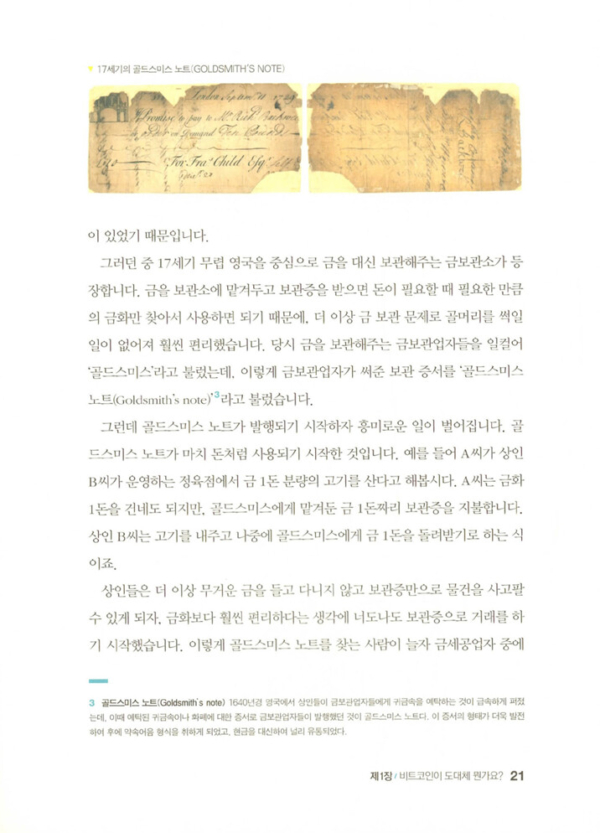 17세기의 골드스미스 노트(GOLDSMITH'S NOTE)
London
Promise to pay to Mr
Demand
For Fra Child Esq
이 있었기 때문입니다.
그러던 중 17세기 무렵 영국을 중심으로 금을 대신 보관해주는 금보관소가 등
장합니다. 금을 보관소에 맡겨두고 보관증을 받으면 돈이 필요할 때 필요한 만큼
의 금화만 찾아서 사용하면 되기 때문에, 더 이상 금 보관 문제로 골머리를 썩일
일이 없어져 훨씬 편리했습니다. 당시 금을 보관해주는 금보관업자들을 일컬어
'골드스미스'라고 불렀는데, 이렇게 금보관업자가 써준 보관 증서를 '골드스미스
노트(Goldsmith's note)'3라고 불렀습니다.
그런데 골드스미스 노트가 발행되기 시작하자 흥미로운 일이 벌어집니다. 골
드스미스 노트가 마치 돈처럼 사용되기 시작한 것입니다. 예를 들어 A씨가 상인
B씨가 운영하는 정육점에서 금 1돈 분량의 고기를 산다고 해봅시다. A씨는 금화
1돈을 건네도 되지만, 골드스미스에게 맡겨둔 금 1돈짜리 보관증을 지불합니다.
상인 B씨는 고기를 내주고 나중에 골드스미스에게 금 1돈을 돌려받기로 하는 식
이죠.
상인들은 더 이상 무거운 금을 들고 다니지 않고 보관증만으로 물건을 사고팔
수 있게 되자, 금화보다 훨씬 편리하다는 생각에 너도나도 보관증으로 거래를 하
기 시작했습니다. 이렇게 골드스미스 노트를 찾는 사람이 늘자 금세공업자 중에
3 골드스미스 노트(Goldsmith's note) 1640년경 영국에서 상인들이 금보관업자들에게 귀금속을 예탁하는 것이 급속하게 퍼졌
는데, 이때 예탁된 귀금속이나 화폐에 대한 증서로 금보관업자들이 발행했던 것이 골드스미스 노트다. 이 증서의 형태가 더욱 발전
하여 후에 약속어음 형식을 취하게 되었고, 현금을 대신하여 널리 유통되었다.
제1장 / 비트코인이 도대체 뭔가요? 21